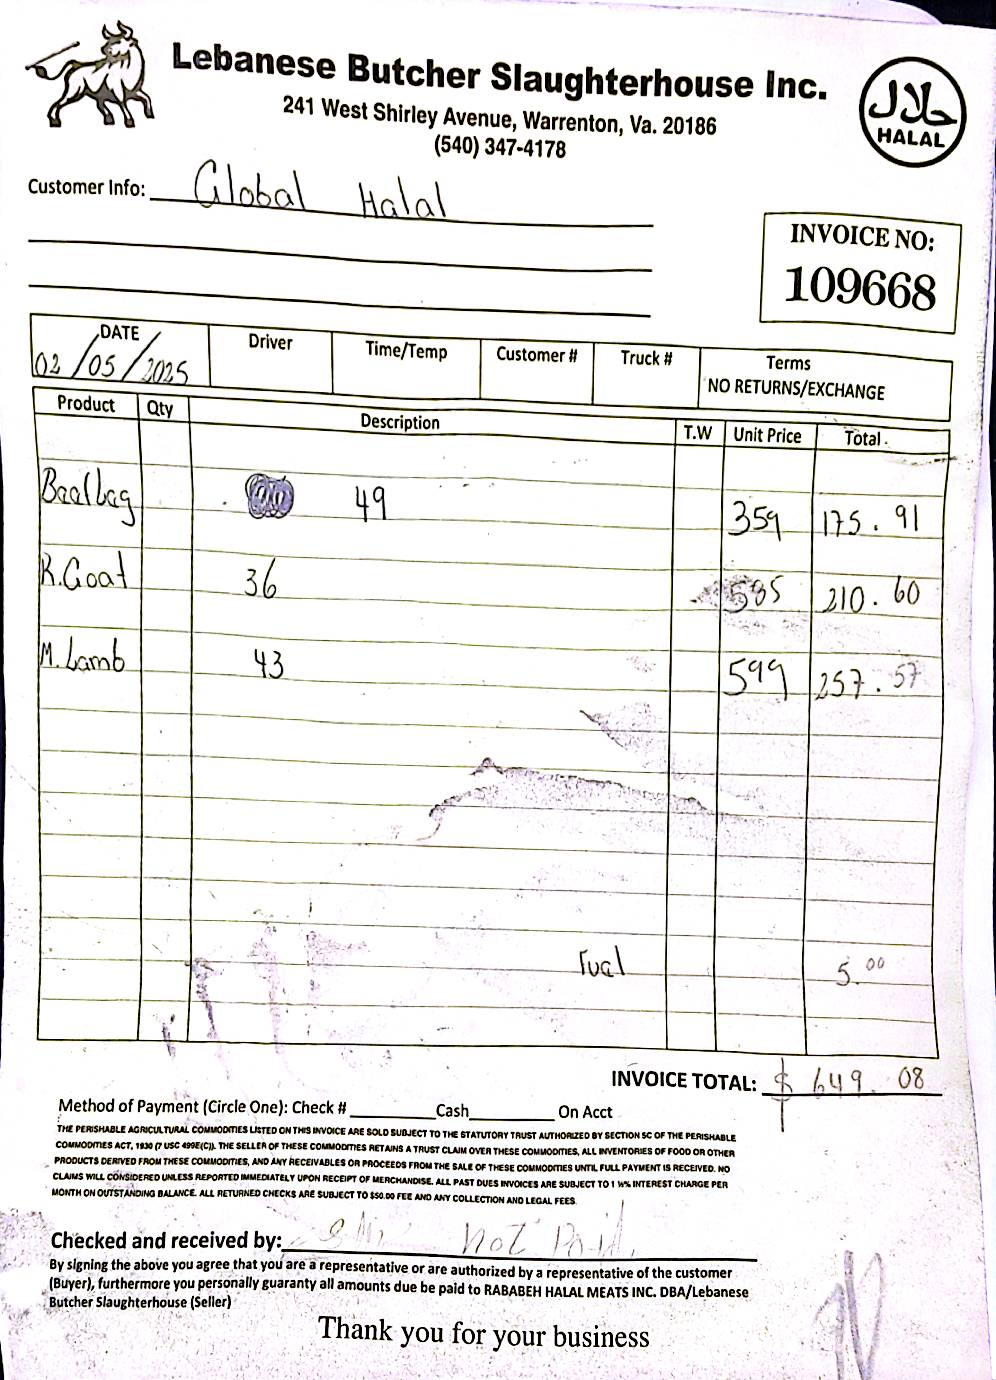 Lebanese Butcher Slaughterhouse Inc.
241 West Shirley Avenue, Warrenton, Va. 20186
(540) 347-4178
حلال
HALAL
Customer Info: Global Halal
INVOICE NO:
109668
DATE Driver Time/Temp Customer # Truck # Terms
02/05/2025 NO RETURNS/EXCHANGE
Product Qty Description T.W Unit Price Total
Baalbag 49 359 175.91
R.Goat 36 585 210.60
M.Lamb 43 599 257.57
Fual 5.00
INVOICE TOTAL: $ 649.08
Method of Payment (Circle One): Check # Cash On Acct
THE PERISHABLE AGRICULTURAL COMMODITIES LISTED ON THIS INVOICE ARE SOLD SUBJECT TO THE STATUTORY TRUST AUTHORIZED BY SECTION 5C OF THE PERISHABLE
COMMODITIES ACT, 1930 (7 USC 499E(C)). THE SELLER OF THESE COMMODITIES RETAINS A TRUST CLAIM OVER THESE COMMODITIES, ALL INVENTORIES OF FOOD OR OTHER
PRODUCTS DERIVED FROM THESE COMMODITIES, AND ANY RECEIVABLES OR PROCEEDS FROM THE SALE OF THESE COMMODITIES UNTIL FULL PAYMENT IS RECEIVED. NO
CLAIMS WILL CONSIDERED UNLESS REPORTED IMMEDIATELY UPON RECEIPT OF MERCHANDISE. ALL PAST DUES INVOICES ARE SUBJECT TO 1 ½% INTEREST CHARGE PER
MONTH ON OUTSTANDING BALANCE. ALL RETURNED CHECKS ARE SUBJECT TO $50.00 FEE AND ANY COLLECTION AND LEGAL FEES.
Checked and received by: not Paid.
By signing the above you agree that you are a representative or are authorized by a representative of the customer
(Buyer), furthermore you personally guaranty all amounts due be paid to RABABEH HALAL MEATS INC. DBA/Lebanese
Butcher Slaughterhouse (Seller)
Thank you for your business